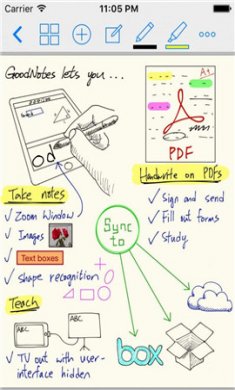 Carrier
11:05 PM
GoodNotes lets you...
A+
PDF
Take notes
✓ Zoom Window
✓ Images
✓ Text boxes
✓ shape recognition
Handwrite on PDFs
✓ Sign and send
✓ Fill out forms
✓ Study
Sync
to
Teach
ABC
ABC
✓ TV out with user-
interface hidden
box